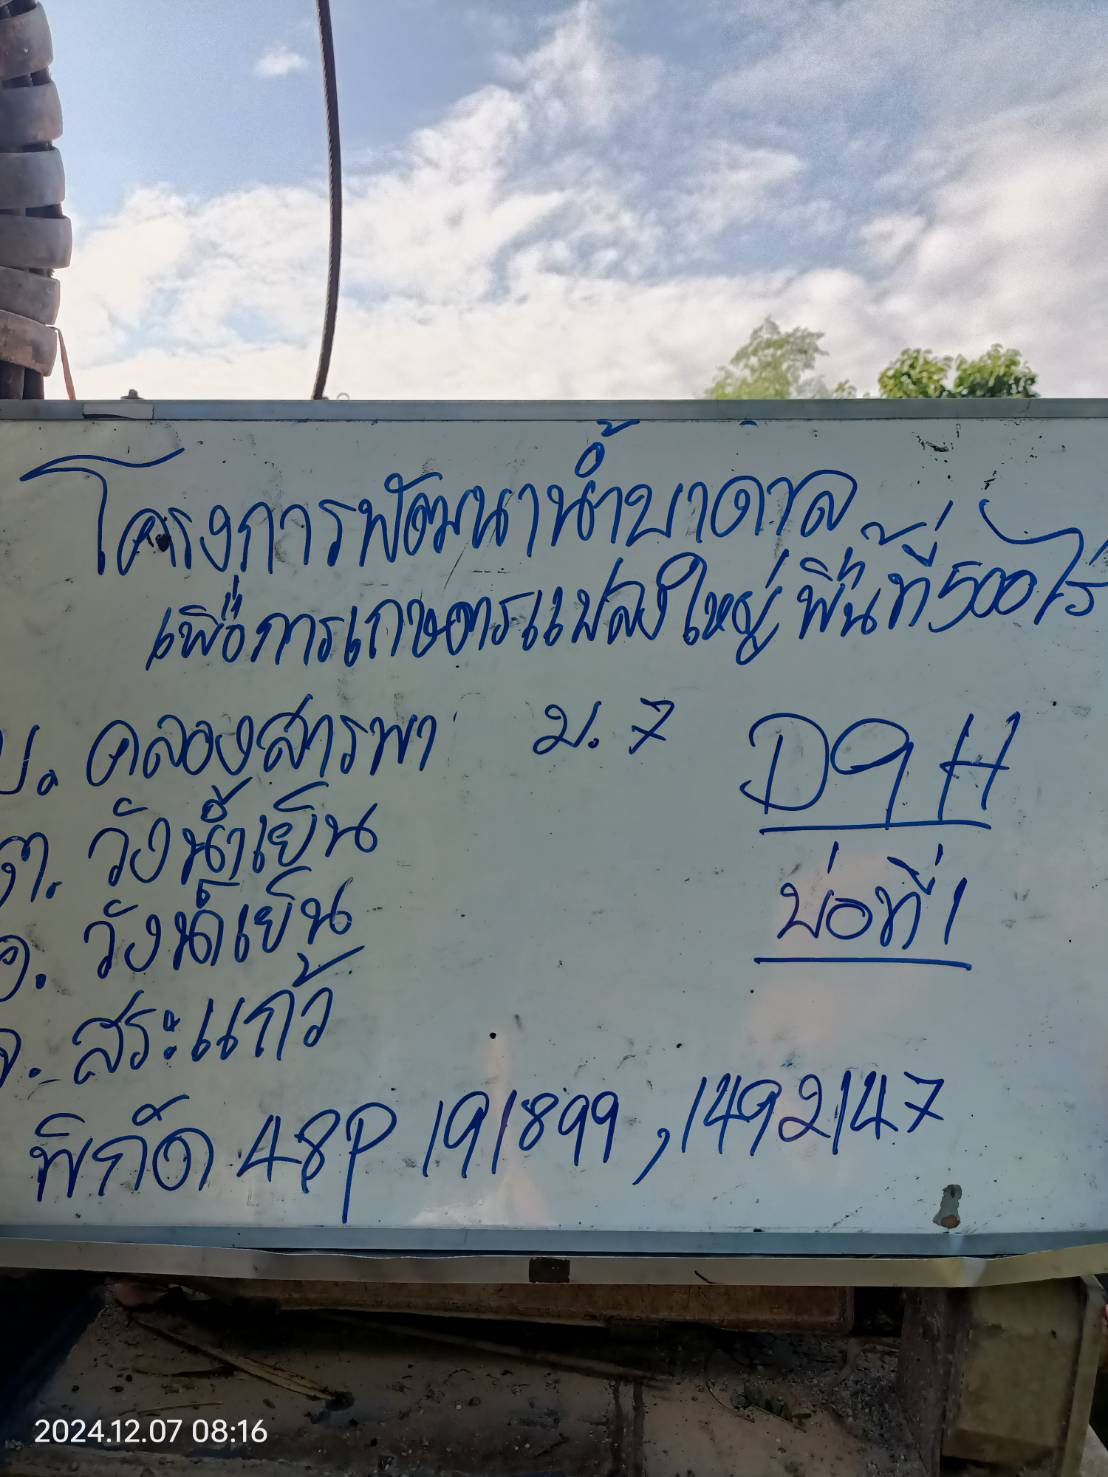 โครงการพัฒนาน้ำบาดาล
เพื่อการเกษตรแปลงใหญ่ พื้นที่ 500 ไร่
บ. คลองสารพา ม. 7
D9H
ต. วังน้ำเย็น
บ่อที่ 1
อ. วังน้ำเย็น
จ. สระแก้ว
พิกัด 48P 191899, 1492147
2024.12.07 08:16